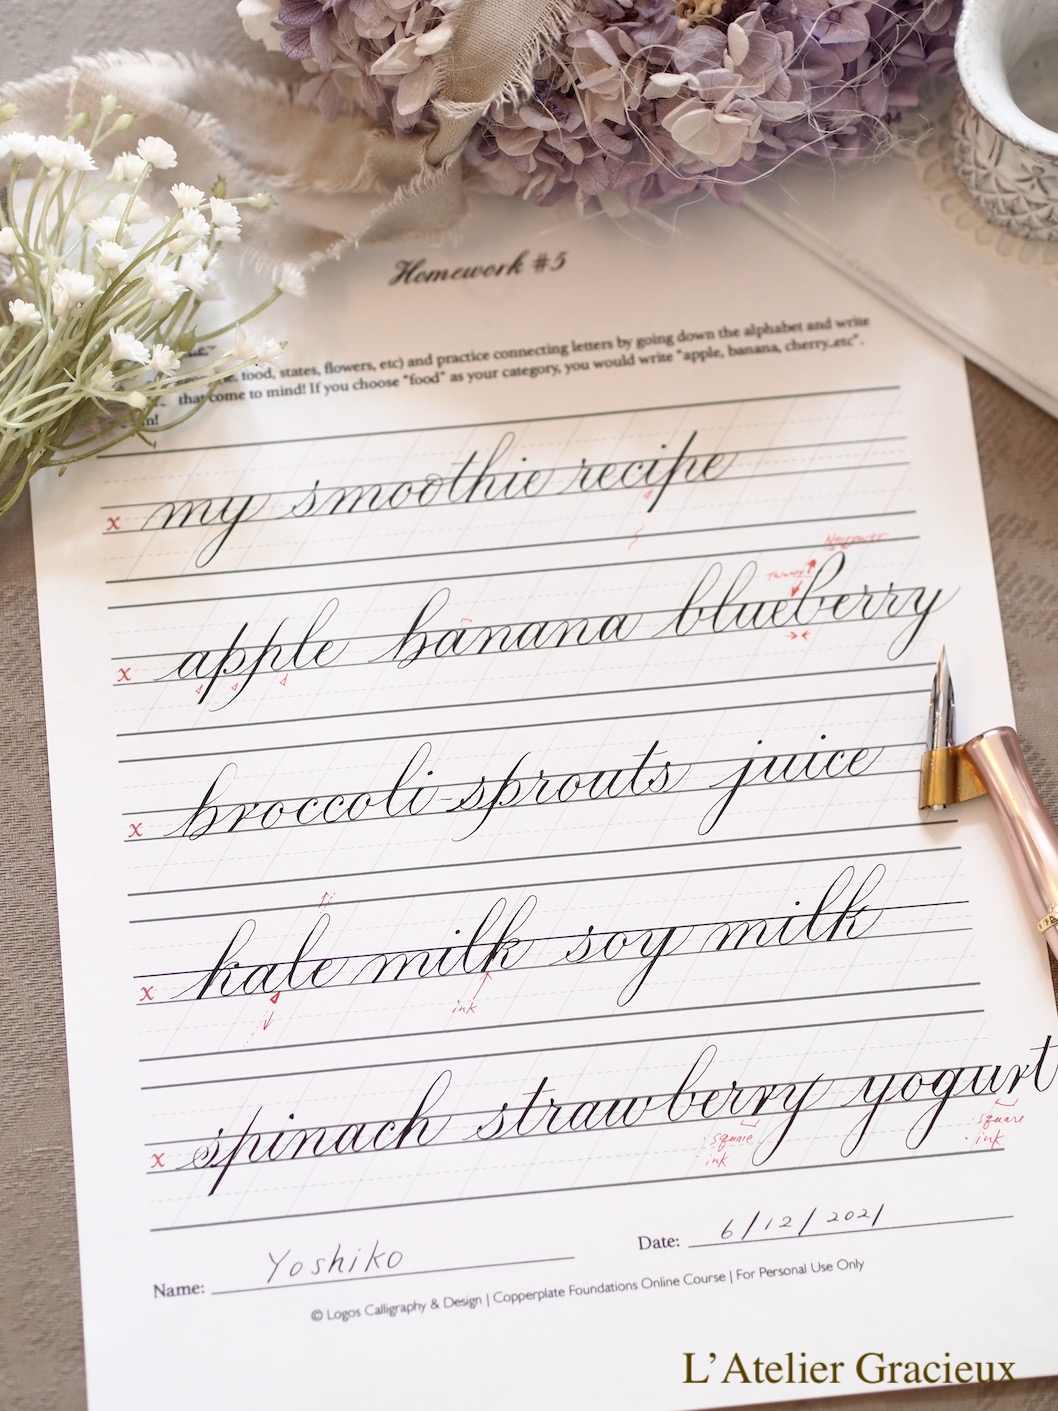 Homework #5
food, states, flowers, etc) and practice connecting letters by going down the alphabet and write
that come to mind! If you choose "food" as your category, you would write "apple, banana, cherry..etc".
my smoothie recipe
x
Narrower
apple banana blueberry
x
broccoli-sprouts juice
x
kale milk soy milk
x
ink
spinach strawberry yogurt
x
square
ink
square
ink
Name: Yoshiko
Date: 6/12/2021
© Logos Calligraphy & Design | Copperplate Foundations Online Course | For Personal Use Only
L'Atelier Gracieux